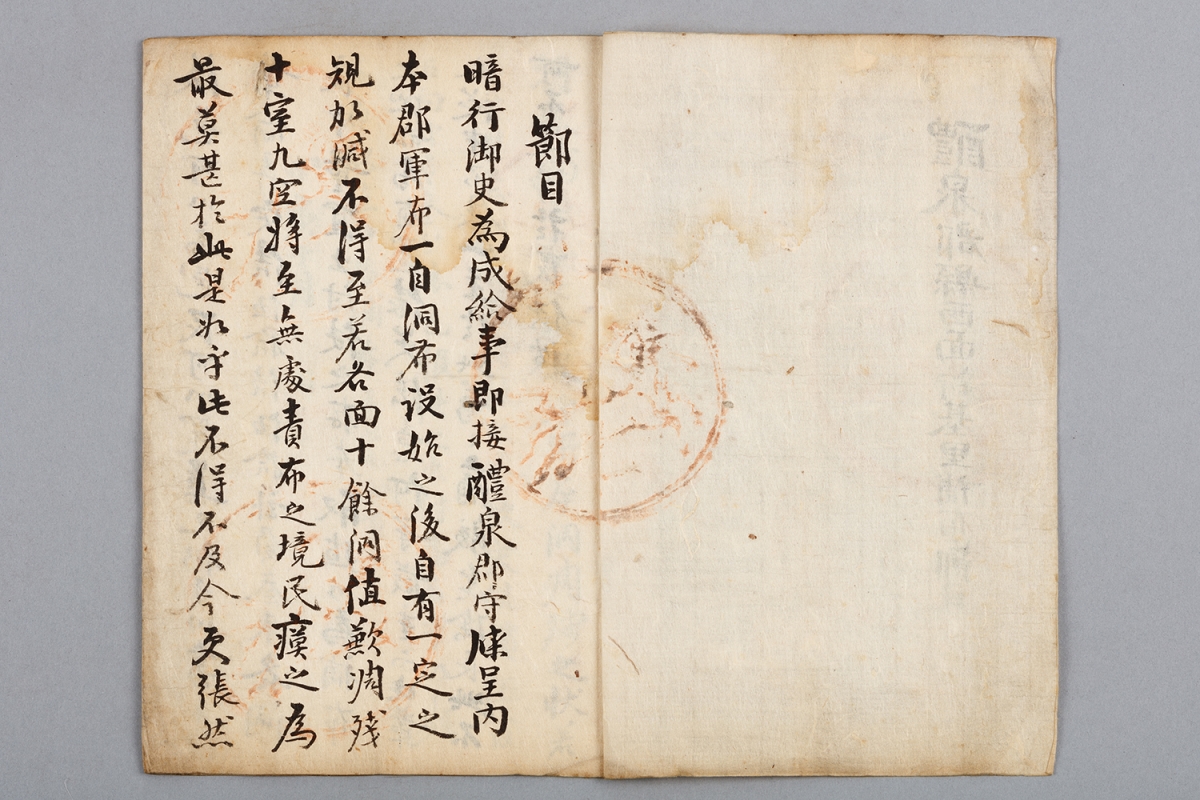 節目
暗行御史為成給事即接醴泉郡守牒呈內
本郡軍布一自洞布設始之後自有一定之
規加減不得至若各面十餘洞値歉凋殘
十室九空將至無處責布之境民瘼之為
最莫甚於此是如乎此不得不及今更張然